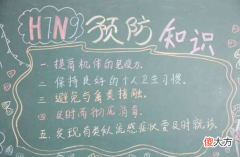 H7N9 预防知识
一.提高机体的免疫力.
二.保持良好的个人卫生习惯.
三.避免与禽类接触.
四.及时而彻底消毒.
五.发现有类似流感症状要及时就诊.
傻大方